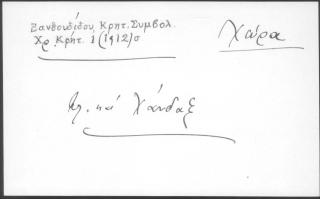 Ξανθουδίδου, Κρητ. Συμβολ.
Χρ. Κρήτ. 1 (1912) σ
Χώρα
βλ. καὶ Χάνδαξ